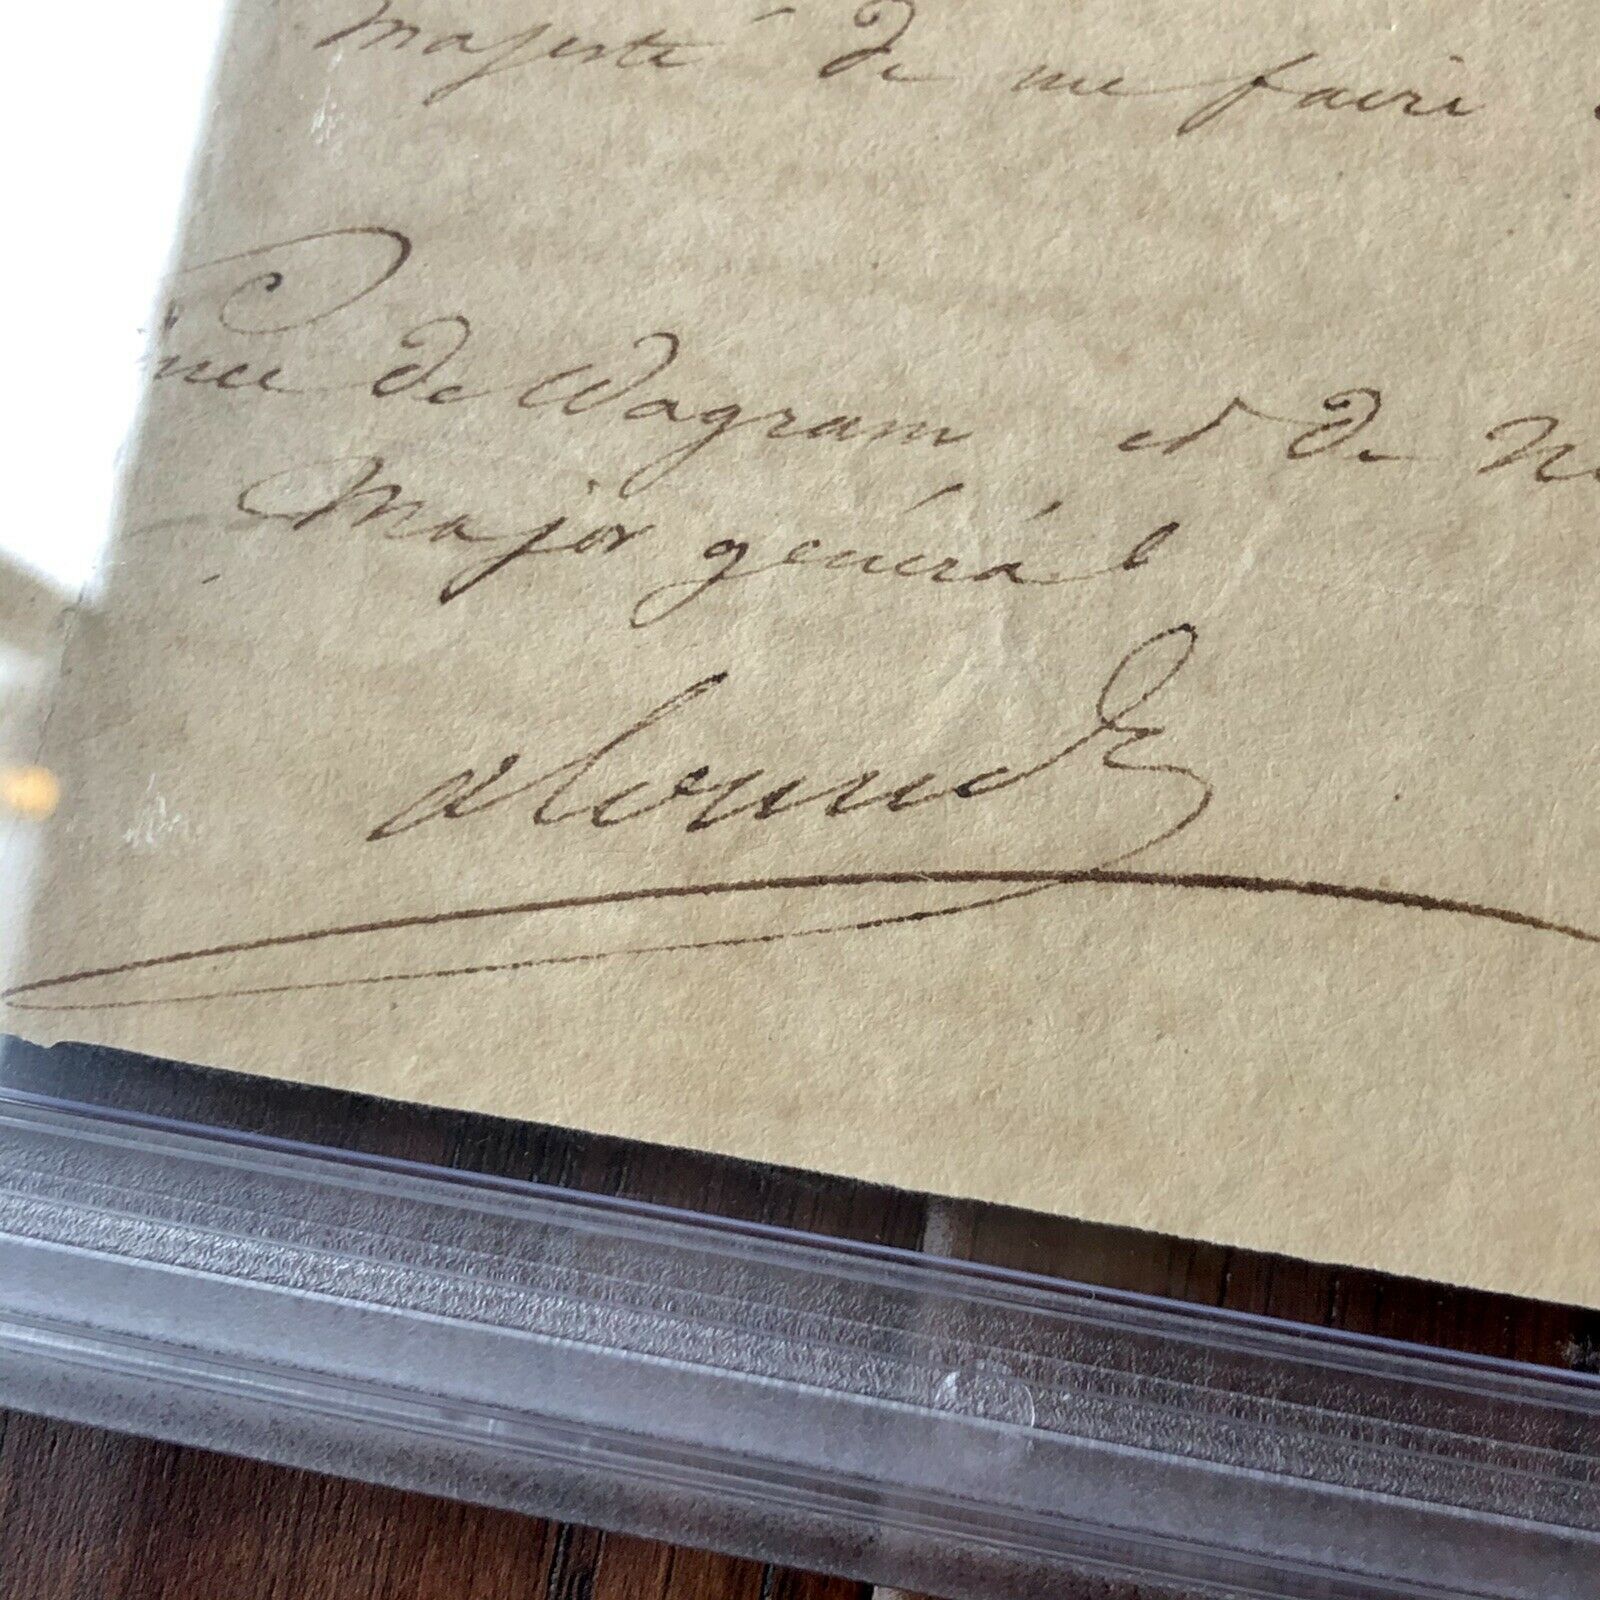 Majesté de me faire
Prince de Wagram et de N
Major général